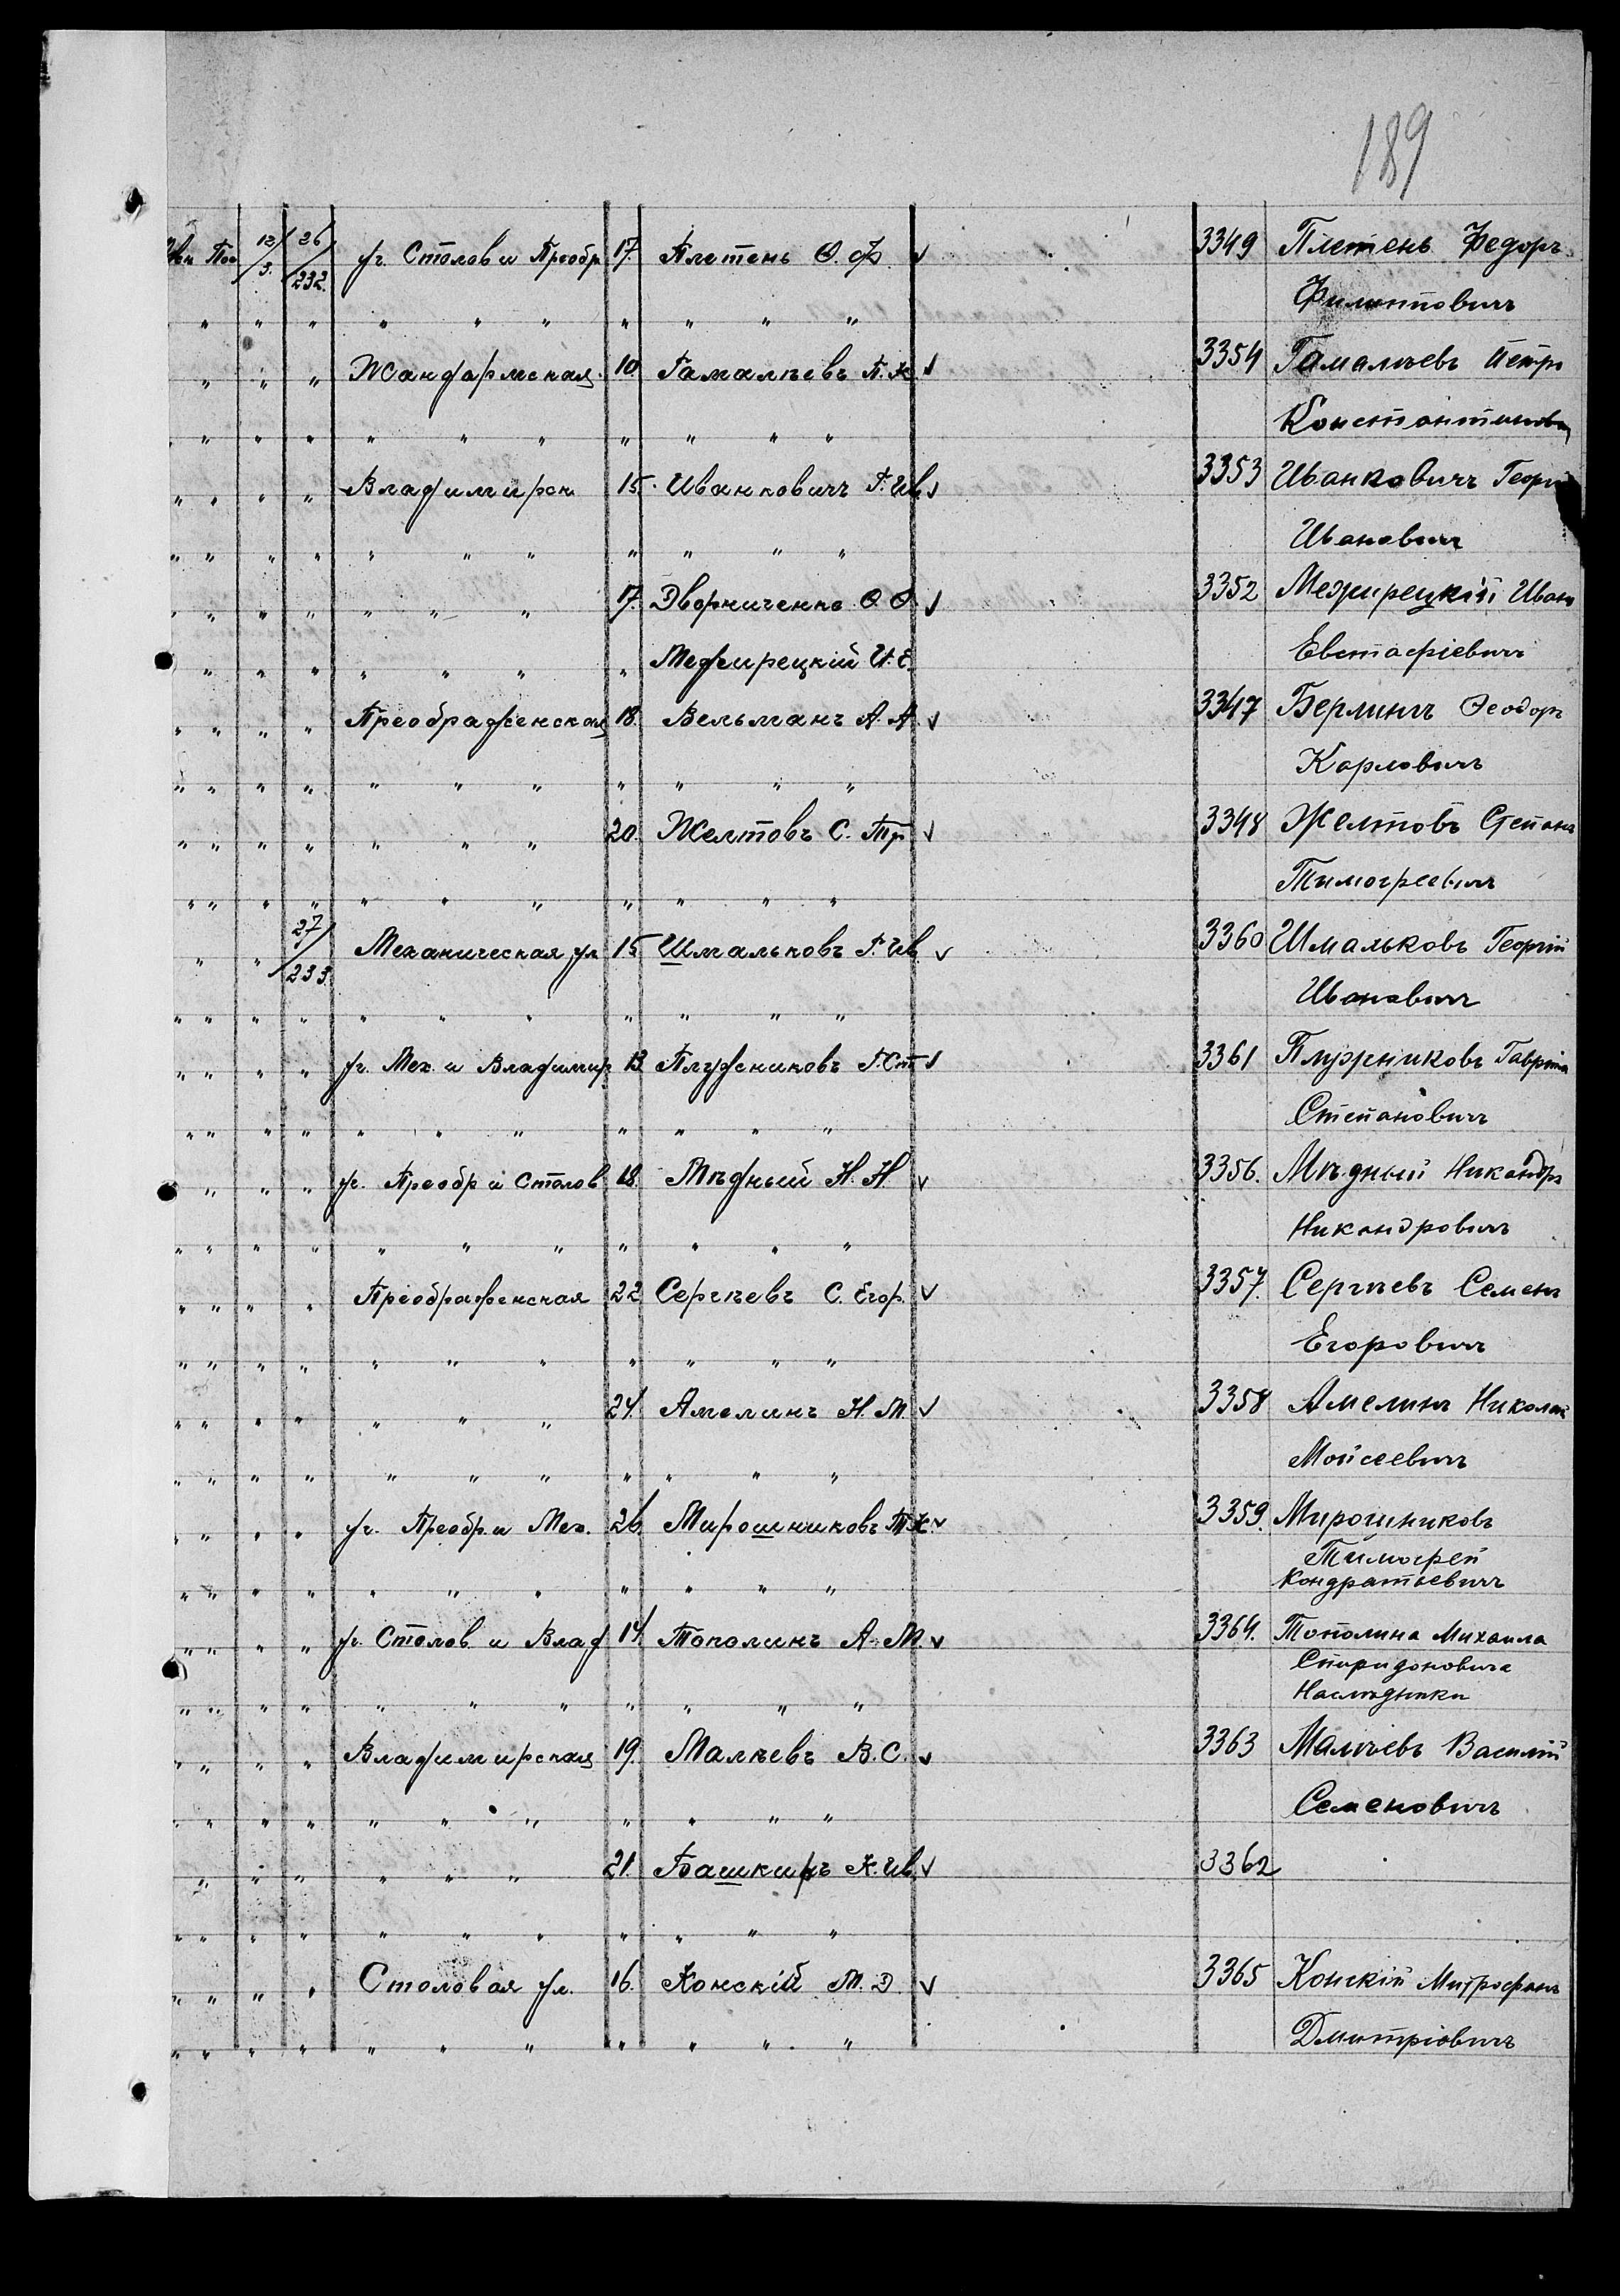 189
12/3. 26/232. уг. Столов и Преобр 17. Плетень Ѳ. Ф. ✓ 3349 Плетень Федоръ
" " " " " " " " " " Филиповичъ
" " " Жандармская 10. Гамалѣевъ П. К ✓ 3354 Гамалѣевъ Петръ
" " " " " " " " " " Константинови
" " " " Владимирск 15. Иванковичъ Г. Ив ✓ 3353 Иванковичъ Георгій
" " " " " " " " " " " Ивановичъ
" " " " " " " 17. Дворниченко Ѳ. Ѳ. ✓ 3352 Межирецкій Иванъ
" " " " " " " Межирецкій И. Е. Евстафіевичъ
" " " " Преображенская 18. Вельманъ А. А. ✓ 3347 Берлинъ Ѳеодоръ
" " " " " " " " " " " Карловичъ
" " " " " " " 20. Желтовъ С. Тр ✓ 3348 Желтовъ Степанъ
" " " " " " " " " " " Тимофеевичъ
" " 27/233. Механическая ул 15 Шмальковъ Г. Ив. ✓ 3360 Шмальковъ Георгій
" " " " " " " " " " " Ивановичъ
" " " " уг. Мех. и Владимир 13 Плужниковъ Г. Ст ✓ 3361 Плужниковъ Гавріил
" " " " " " " " " " " Степановичъ
" " " уг. Преобр и Столов 18. Мѣдный Н. Н. ✓ 3356. Мѣдный Никандръ
" " " " " " " " " " " Никандровичъ
" " " " Преображенская 22 Сергѣевъ С. Егор. ✓ 3357. Сергѣевъ Семенъ
" " " " " " " " " " " Егоровичъ
" " " " " " " 24. Амелинъ Н. М. ✓ 3358 Амелинъ Николай
" " " " " " " " " " " Мойсеевичъ
" " " " уг. Преобр. и Мех. 26. Мирошниковъ Т. К. ✓ 3359. Мирошниковъ
Тимофей
" " " " " " " " " " " Кондратьевичъ
" " " " уг. Столов. и Влад 14. Тополинъ А. М. ✓ 3364. Тополина Михаила
Спиридоновича
" " " " " " " " " " " Наслѣдники
" " " " Владимирская 19. Малѣевъ В. С. ✓ 3363 Малѣевъ Василій
" " " " " " " " " " " Семеновичъ
" " " " " " 21. Башкиръ К. Ив. ✓ 3362
" " " " " " " " " " "
" " " " Столовая ул. 16. Конскій М. Д. ✓ 3365 Конскій Митрофанъ
" " " " " " " " " " " Дмитріовичъ